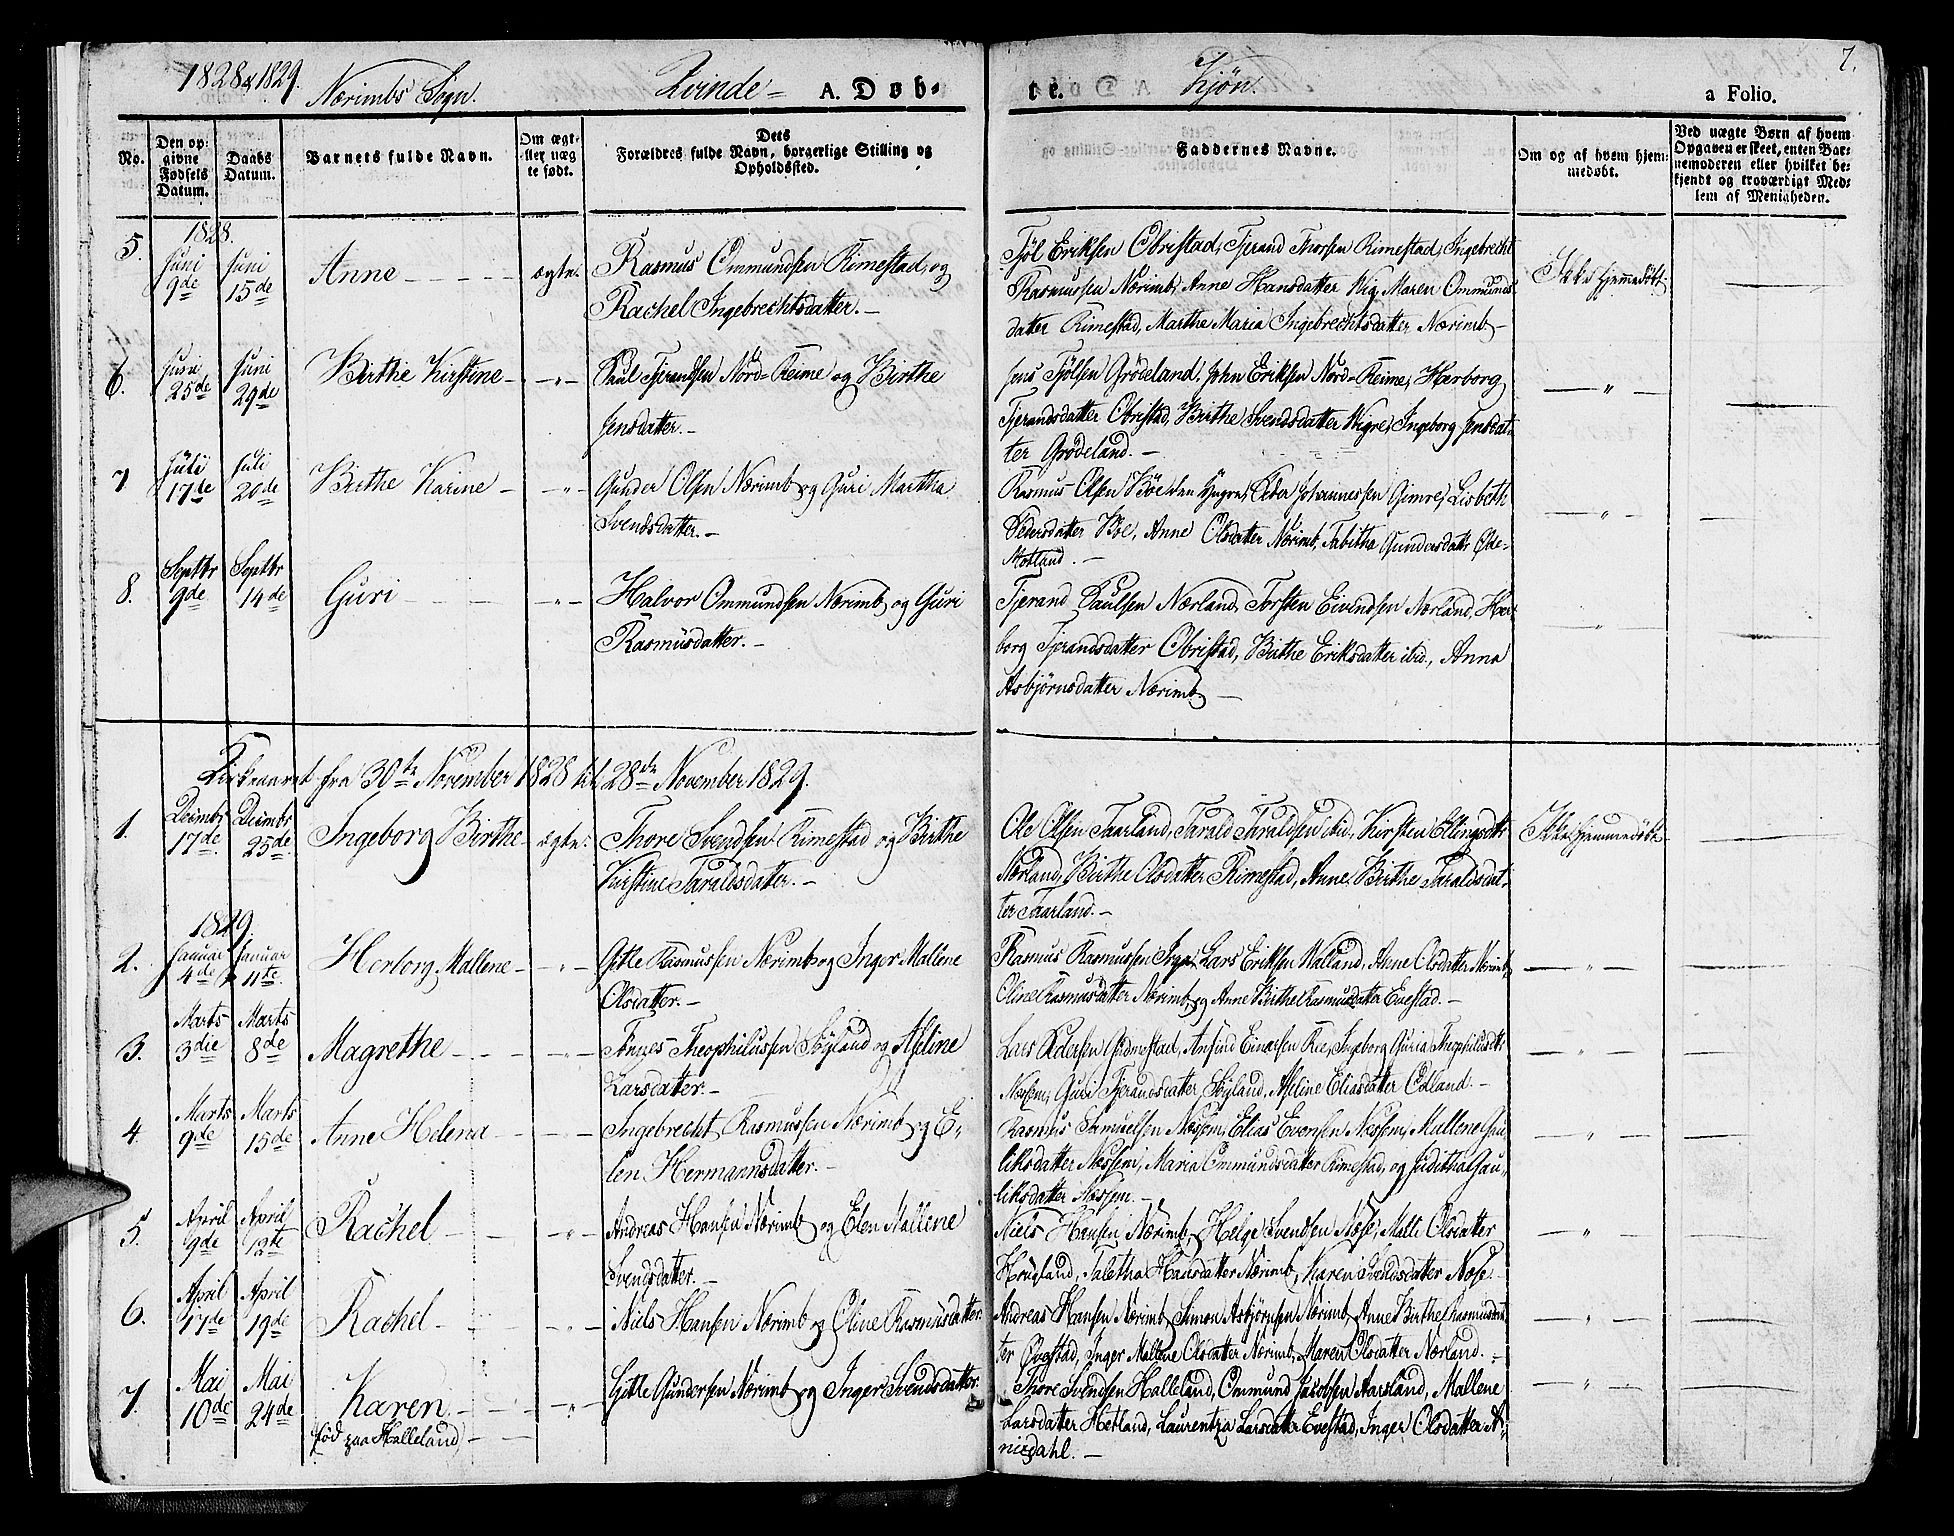 1828 & 1829. Nærimbs Sogn. Qvinde- A. Døb- te. Kjøn. 7.
a Folio.
No.
Den opgivne Fødsels Datum.
Daabs Datum.
Barnets fulde Navn.
Om ægteller uægte født.
Dets Forældres fulde Navn, borgerlige Stilling og Opholdssted.
Faddernes Navne.
Om og af hvem hjemmedøbt.
Ved uægte Børn af hvem Opgaven er skeet, enten Barnemoderen eller hvilket bekjendt og troværdigt Medlem af Menigheden.
1828.
5. Juni 9de Juni 15de Anne ægte. Rasmus Ommundsen Rimestad og
Rachel Ingebrechtsdatter.
Tjøl Eriksen Obristad, Tjerand Thorsen Rimestad, Ingebrecht
Rasmussen Nærimb, Anne Hansdatter Wig, Maren Ommunds-
datter Rimestad, Marthe Maria Ingebrechtsdatter Nærimb
Ikke hjemmedøbt
6. Juni 25de Juni 29de Birthe Kirstine - " - Paul Tjerandsen Nord-Reime og Birthe
Jensdatter.
Jens Tjølsen Grödeland, John Eriksen Nord-Reime, Herborg
Tjerandsdatter Obristad, Birthe Svendsdatter Wigre, Ingeborg Jensdat-
ter Grödeland.
7 Juli 17de Juli 20de Birthe Karine - " - Gunder Olsen Nærimb og Guri Martha
Svendsdatter.
Rasmus Olsen Böe, Peder Johannessen Gimre, Lisbeth
Pedersdatter Böe, Anne Olsdatter Nærimb, Tabitha Gundersdatr Øde-
Motland.
8. Septbr 9de Septbr 14de Guri - " - Halvor Ommundsen Nærimb og Guri
Rasmusdatter.
Tjerand Paulsen Nærland, Torsten Eivendsen Nærland, Her-
borg Tjerandsdatter Obristad, Birthe Eriksdatter ibid., Anna
Asbjörnsdatter Nærimb
Kirkeaaret fra 30te November 1828 til 28de November 1829.
1. Decmbr 17de Decmbr 25de Ingeborg Birthe ægte: Thore Svendsen Rimestad og Birthe
Kirstine Taraldsdatter.
Ole Olsen Taarland, Tarald Taraldsen ibid., Kirsten Ellingsdtr
Nærland, Birthe Olsdatter Rimestad, Anne Birthe Taraldsdat-
ter Taarland.
Ikke hjemmedøbt
1829.
2. Januar 4de Januar 11te Herborg Mallene - " - Gitle Rasmussen Nærimb og Inger Malene
Olsdatter.
Rasmus Rasmussen, Lars Eriksen Walland, Anne Olsdatter Nærimb,
Oline Rasmusdatter Nærimb og Anne Birthe Rasmusdatter Evestad.
3. Marts 3die Marts 8de Magrethe - " - Theophilussen Söyland og Aseline
Larsdatter.
Lars Pedersen Gudmestad, Anfind Einarsen Ree, Ingeborg Guria Theophilusdtr
Nessem, Guri Tjerandsdatter Söyland, Aseline Eliasdatter Odland.
4. Marts 9de Marts 15de Anne Helena - " - Ingebrecht Rasmussen Nærimb og E-
len Hermannsdatter.
Rasmus Samuelsen Nessem, Elias Evensen Nessem, Mallene Gau-
liksdatter Nessem, Maria Ommundsdatter Rimestad, og Juditha Gau-
liksdatter Nessem.
5. April 9de April 12te Rachel - " - Andreas Hansen Nærimb og Elen Mallene
Svendsdatter.
Niels Hansen Nærimb, Helge Svendsen Nose, Malli Olsdatter
Haugland, Taletha Hansdatter Nærimb, Karen Svendsdatter Nose.
6. April 17de April 19de Rachel - " - Niels Hansen Nærimb og Oline Rasmusdatter.
Andreas Hansen Nærimb, Simon Asbjörnsen Nærimb, Anne Birthe Rasmusdat-
ter Evestad, Inger Mallene Olsdatter Nærimb, Maren Olsdatter Nærland.
7. Mai 10de Mai 24de Karen - " - Gitle Gundersen Nærimb og Inger Svendsdatter.
(fød paa Halleland)
Thore Svendsen Halleland, Ommund Jacobsen Aarsland, Mallene
Larsdatter Hetland, Laurentza Larsdatter Evestad, Inger Olsdatter A-
nisdahl.